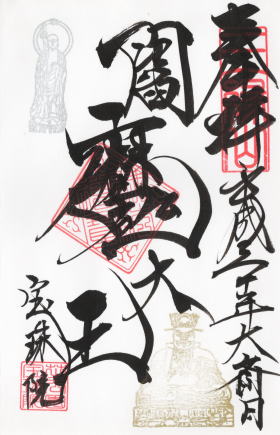 奉拝
平成三十年大斎日
閻魔大王
宝珠院